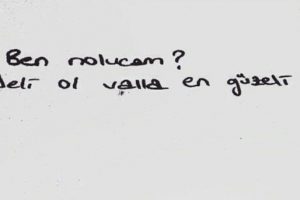 Ben nolucam?
deli ol valla en güzeli